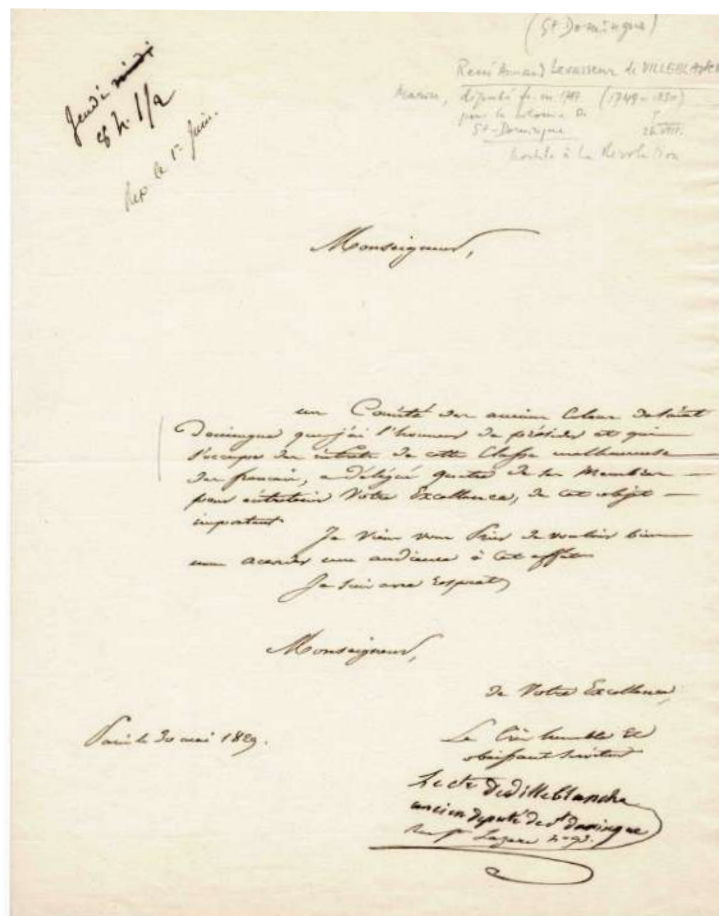 (St Domingue)
Jeudi midi
8 h. 1/2
Rep le 1er Juin.
René Armand Levasseur de VILLEBLANCHE
Marine, député fr. en 1789 (1749-1830)
pour la colonie de
St-Domingue
hostile à la Révolution
Monseigneur,
un Comité des anciens Colons de Saint
Domingue que j'ai l'honneur de présider et qui
s'occupe des intérêts de cette Classe malheureuse
des français, a délégué quatre de ses Membres
pour entretenir Votre Excellence, de cet objet
important.
Je viens vous Prier de vouloir bien
nous accorder une audience à cet effet
Je suis avec respect,
Monseigneur,
de Votre Excellence,
Paris le 30 mai 1829.
Le très humble et
obéissant serviteur
Le cte de Villeblanche
ancien député de st domingue
rue st Lazare